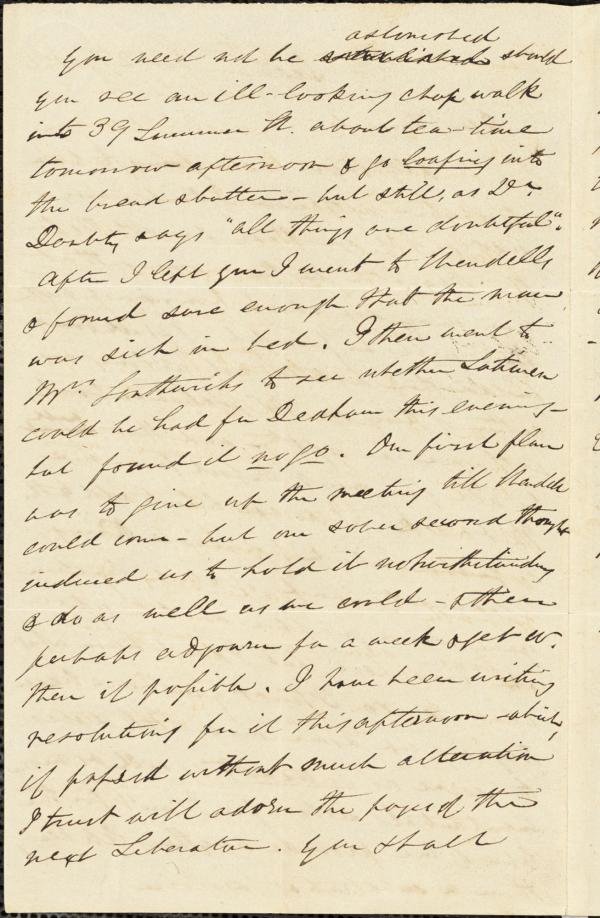 astonished
You need not be should
you see an ill-looking chap walk
into 39 Summer St. about tea-time
tomorrow afternoon & go loafing into
the bread & butter - but still, as Dr.
Doubty says "all things are doubtful".
After I left you I went to Wendell's
& found sure enough that the man
was sick in bed. I then went to
Mrs. Southwick's to see whether Latimer
could be had for Dedham this evening -
but found it no go. Our first plan
was to give up the meeting till Wendell
could come - but our sober second thought
induced us to hold it notwithstanding
& do as well as we could - & then
perhaps adjourn for a week & get W.
then if possible. I have been writing
resolutions for it this afternoon - which,
if passed without much alteration
I trust will adorn the pages of the
next Liberator. You shall